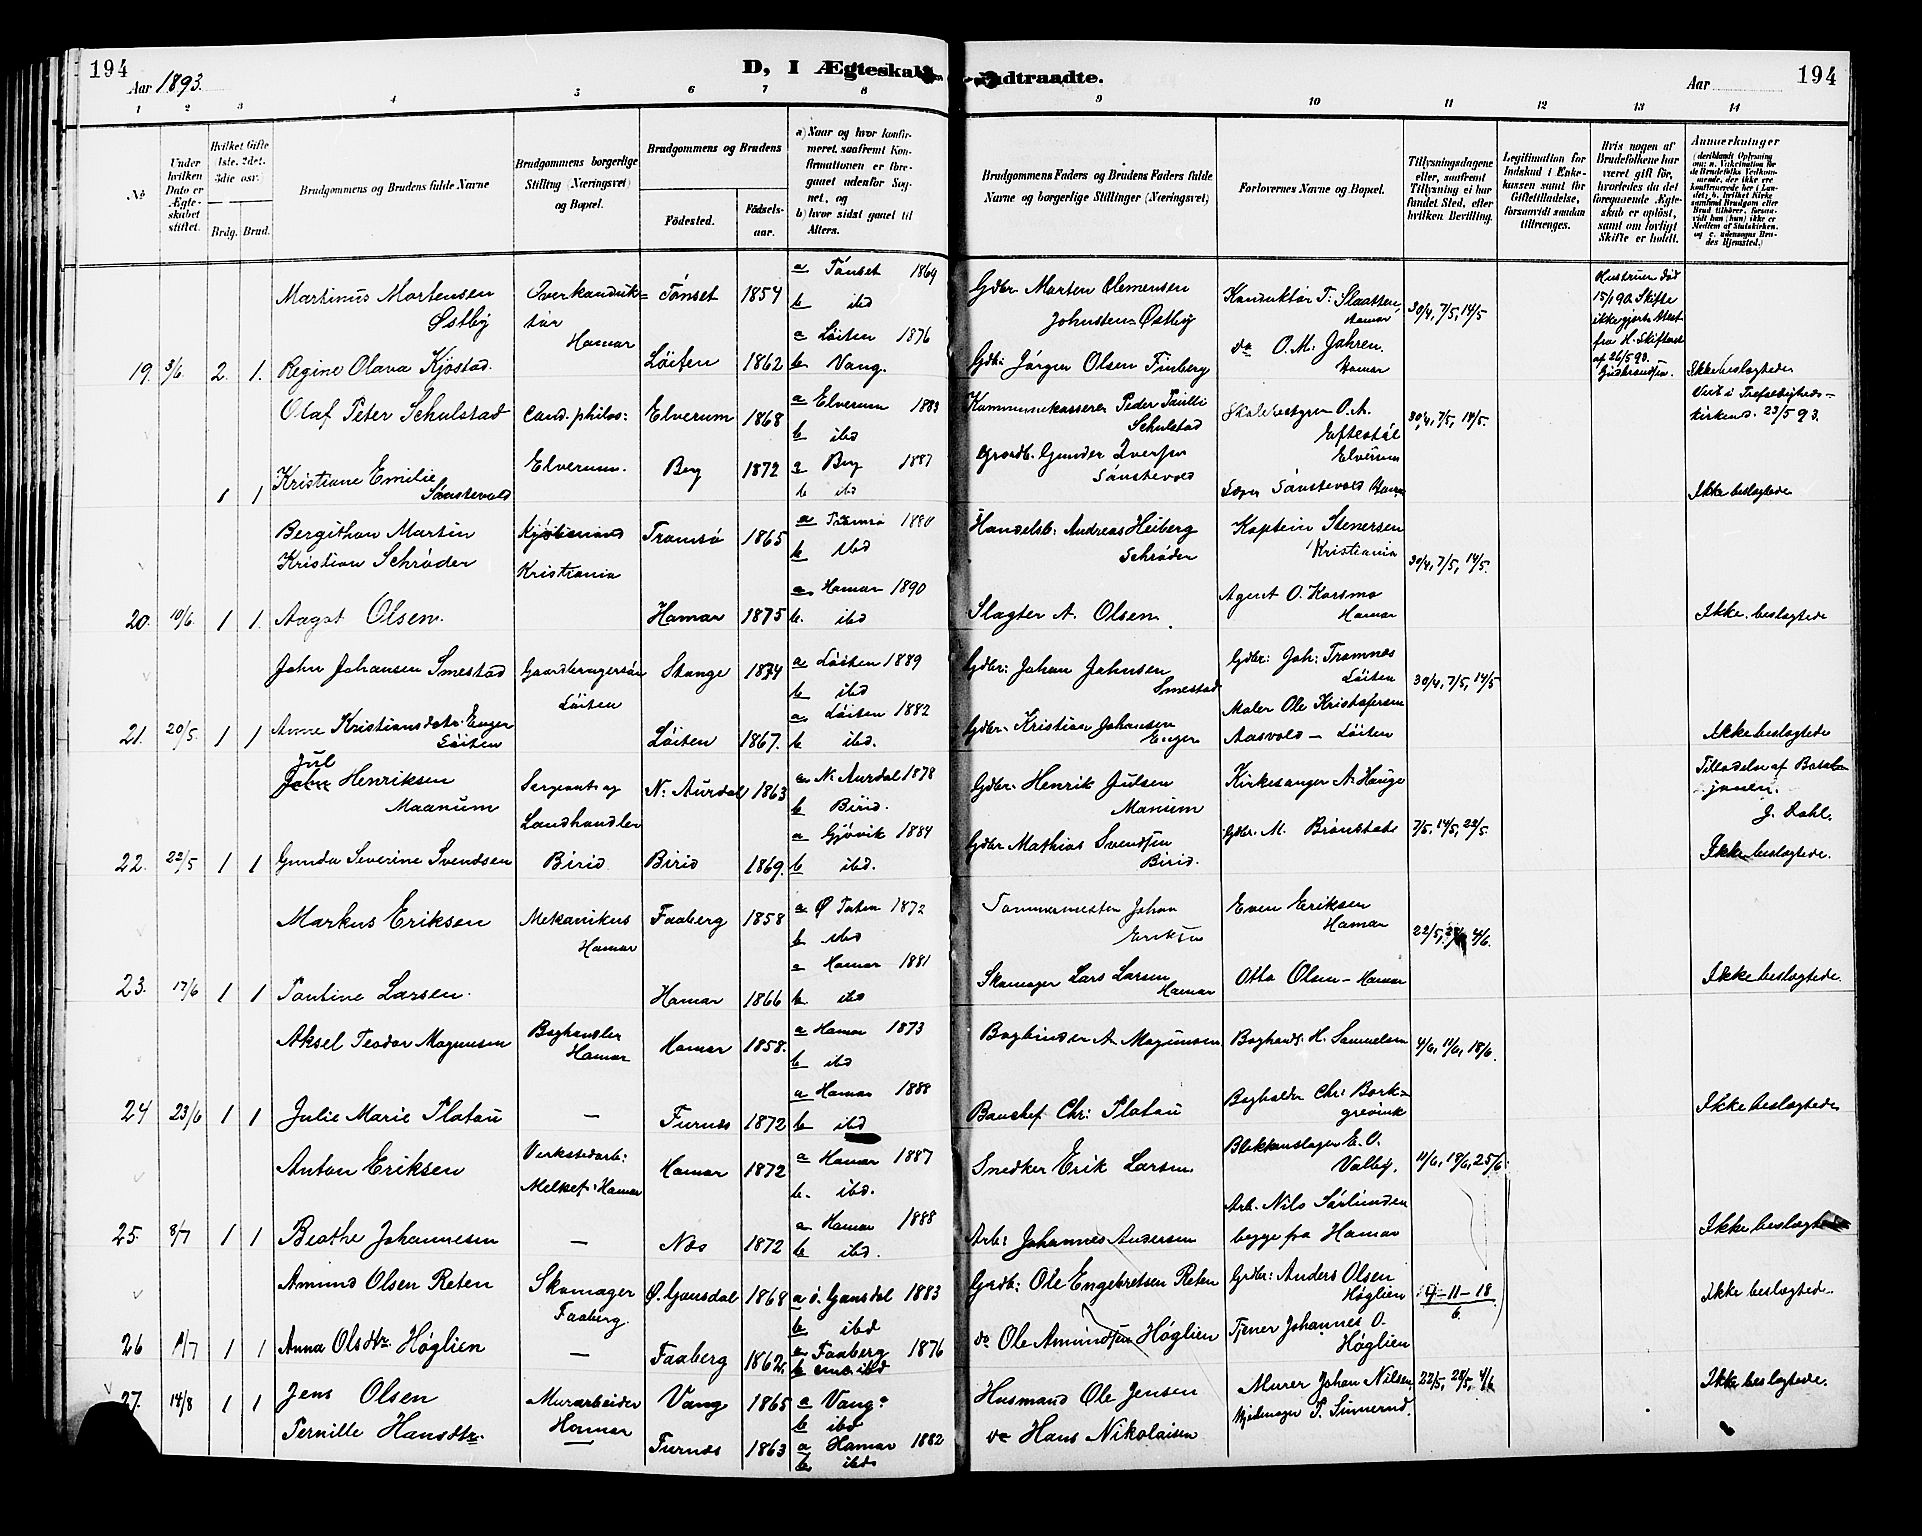 194
Aar 1893.
D, I Ægteskab
ndtraadte.
Aar
194
1 2 3 4 5 6 7 8 9 10 11 12 13 14
No
Under hvilken Dato er Ægteskabet stiftet.
Hvilket Gifte (1ste, 2det, 3die osv.)
Brdg. Brud.
Brudgommens og Brudens fulde Navne
Brudgommens borgerlige Stilling (Næringsvei) og Bopæl.
Brudgommens og Brudens
Födested.
Födselsaar.
a) Naar og hvor konfirmeret, saafremt Konfirmationen er foregaaet udenfor Sognet, og
b) hvor sidst gaaet til Alters.
Brudgommens Faders og Brudens Faders fulde Navne og borgerlige Stillinger (Næringsvei)
Forlovernes Navne og Bopæl.
Tillysningsdagene eller, saafremt Tillysning ei har fundet Sted, efter hvilken Bevilling.
Legitimation for Indskud i Enkekassen samt for Giftetilladelse, forsaavidt saadan tiltrænges.
Hvis nogen af Brudefolkene har været gift för, hvorledes da det foregaaende Ægteskab er oplöst, samt om lovligt Skifte er holdt.
Anmærkninger
Martinus Mortensen Østby
Overkonduktør Hamar
Tönset 1854
a Tönset 1869
b ibd
Gdbr. Morten Clemensen Johnsten Østby
Konduktør T. Slaatten, Hamar
30/4, 7/5, 14/5
Hustruen død 15/1 90. Skifte ikke gjort. Attest fra H. Skifteret af 26/5 90.
19. 3/6 2. 1. Regine Olava Kjöstad.
Löiten 1862
a Löiten 1876
b Vang.
Gdbr. Jörgen Olsen Finberg
do O. M. Jahren. Hamar
Ikke beslægtede
Olaf Peter Schulstad
Cand. philos:
Elverum 1868
a Elverum 1883
b ibd
Kommunekasserer Peder Paulli Schulstad
Skolebestyrer O. A. Eftestöl Elverum
30/4, 7/5, 14/5.
Viet i Trefoldighedskirken d. 23/5 93.
1 1 Kristiane Emilie Sönstevold
Elverum.
Berg 1872
a Berg 1887
b ibd
Gaardb. Gunder Iversen Sönstevold
Sönstevold Hamar
Ikke beslægtede
Bergithon Martin Kristian Schrøder
Kjöbmand Kristiania
Tromsö 1865
a Tromsö 1880
b ibd
Handelsb. Andreas Heiberg Schrøder
Kaptein Stenersen Kristiania
30/4, 7/5, 14/5.
20. 10/6 1 1. Aagot Olsen.
Hamar 1875
a. Hamar 1890
b. ibd
Slagter A. Olsen.
Agent O. Korsmo Hamar
Ikke beslægtede
John Johansen Smestad
Gaardbrugersön Löiten
Stange 1874
a Löiten 1889
b ibd
Gdbr: Johan Johnsen Smestad
Gdbr: Joh: Tromnes Löiten
30/4, 7/5, 14/5
21. 20/5. 1 1 Anne Kristiansdatr. Enger Löiten
Löiten 1867.
a. Löiten 1882
b ibd.
Gdbr. Kristian Johansen Enger
Maler Ole Kristofersen Aasvold – Löiten
Ikke beslægtede
Jul
John Henriksen Maanum
Sergeant og Landhandler
N. Aurdal 1863
a. N. Aurdal 1878
b Birid.
Gdbr. Henrik Julsen Manum
Kirkesanger A. Hauge
7/5, 14/5, 22/5
Tilladelse af Bataljonen. J. Dahl.
22. 22/5 1 1 Gunda Severine Svendsen
Birid
Birid 1869.
a Gjövik 1884
b ibd.
Gdbr Mathias Svendsen Birid.
Gdbr. M. Brönstad
Ikke beslægtede.
Markus Eriksen
Mekanikus Hamar
Faaberg 1858
a Ø Toten 1872
b ibd
Tømmermester Johan Eriksen
Even Eriksen Hamar
22/5, 28/5 4/6.
23. 17/6 1 1 Pauline Larsen.
Hamar 1866
a Hamar 1881
b. ibd
Skomager Lars Larsen Hamar
Otto Olsen – Hamar
Ikke beslægtede.
Aksel Teodor Magnusen
Boghandler Hamar
Hamar 1858.
a Hamar 1873
b ibd
Bogbinder A. Magnusen
Boghandl. H. Samuelsen
4/6, 11/6, 18/6.
24 23/6 1 1 Julie Marie Platou
–
Furnes 1872
a Hamar 1888
b ibd
Banechef Chr: Platou
Bogholder Chr: Borkgrevink
Ikke beslægtede
Anton Eriksen
Verkstedarb: Melkef. Hamar
Hamar 1872
a Hamar 1887
b. ibd.
Snedker Erik Larsen
Blikkenslager E. O. Valby.
11/6, 18/6, 25/6.
25. 8/7 1 1 Beathe Johannesen
–
Næs 1872
a. Hamar 1888
b ibd.
Arb: Johannes Andersen
Arb. Nils Sörlunden begge fra Hamar
Ikke beslægtede
Amund Olsen Reten
Skomager Faaberg.
Ø. Gausdal 1868
a Ö. Gausdal 1883
b ibd
Gardb: Ole Engebretsen Reten
Grdbr: Anders Olsen Höglien
4–11–18
6.
Ikke beslægtede.
26 1/7 1 1 Anna Olsdtr Höglien
–
Faaberg 1862.
a. Faaberg 1876
b ibd
do Ole Amundsen Höglien
Tjener Johannes O. Höglien
27. 14/8 1 1 Jens Olsen
Murarbeider Hamar
Vang 1865
a Vang.
b ibd
Husmand Ole Jensen
Murer Johan Nilsen,
22/5, 28/5, 4/6
Ikke beslægtede.
Pernille Hansdtr.
–
Furnes 1863
a Hamar 1882
b. ibd.
do Hans Nikolaisen